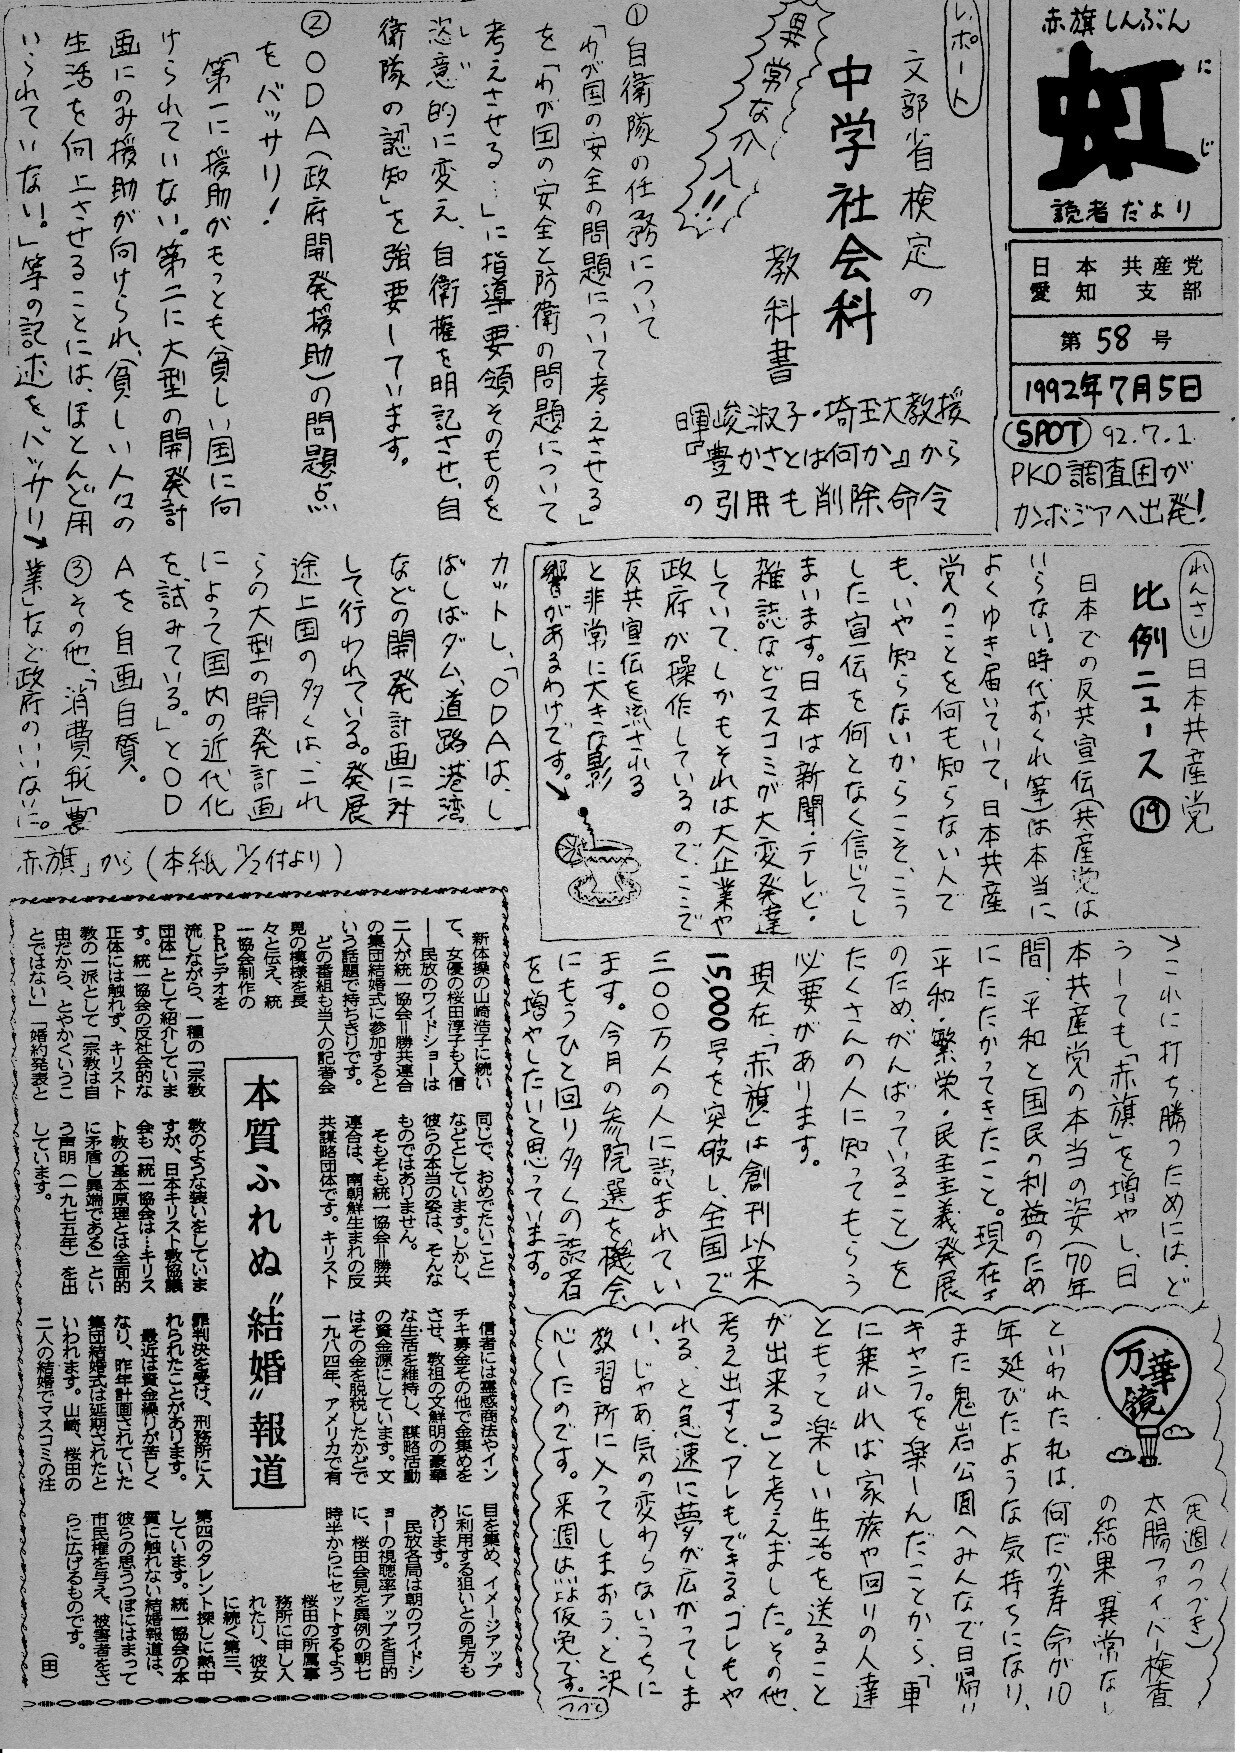 赤旗しんぶん
虹
にじ
読者だより
日本共産党
愛知支部
第58号
1992年7月5日
SPOT 92.7.1
PKO調査団が
カンボジアへ出発!
レポート
文部省検定の
中学社会科
教科書
異常な介入!!
暉峻淑子・埼玉大教授
『豊かさとは何か』から
の引用も削除命令
①自衛隊の任務について
「わが国の安全の問題について考えさせる」
を「わが国の安全と防衛の問題について
考えさせる…」に指導要領そのものを
恣意的に変え、自衛権を明記させ、自
衛隊の「認知」を強要しています。
②ODA(政府開発援助)の問題点
をバッサリ!
「第一に援助がもっとも貧しい国に向
けられていない。第二に大型の開発計
画にのみ援助が向けられ、貧しい人々の
生活を向上させることには、ほとんど用
いられていない。」等の記述をバッサリ
カットし、「ODAは、し
ばしばダム、道路、港湾
などの開発計画に対
して行われている。発展
途上国の多くは、これ
らの大型の開発計画
によって国内の近代化
を試みている。」とOD
Aを自画自賛。
③その他、「消費税」「農
業」など政府のいいなりに。
赤旗」から(本紙7/2付より)
れんさい
日本共産党
比例ニュース⑲
日本での反共宣伝(共産党は
いらない。時代おくれ等)は本当に
よくゆき届いていて、日本共産
党のことを何も知らない人で
も、いや知らないからこそ、こう
した宣伝を何となく信じてし
まいます。日本は新聞・テレビ・
雑誌などマスコミが大変発達
していて、しかもそれは大企業や
政府が操作しているので、ここで
反共宣伝を流される
と非常に大きな影
響があるわけです。
これに打ち勝つためには、ど
うしても「赤旗」を増やし、日
本共産党の本当の姿(70年
間、平和と国民の利益のため
にたたかってきたこと。現在も
平和・繁栄・民主主義発展
のため、がんばっていること)を
たくさんの人に知ってもらう
必要があります。
現在、「赤旗」は創刊以来
15,000号を突破し、全国で
三〇〇万人の人に読まれてい
ます。今月の参院選を機会
にもうひと回り多くの読者
を増やしたいと思っています。
万華鏡
(先週のつづき)
大腸ファイバー検査
の結果、異常なし
といわれた私は、何だか寿命が10
年延びたような気持ちになり、
また鬼岩公園へみんなで日帰り
キャンプを楽しんだことから、「車
に乗れれば、家族や回りの人達
ともっと楽しい生活を送ること
が出来る」と考えました。その他、
考え出すと、アレもできる、コレもや
れる、と急速に夢が広がってしま
い、じゃあ気の変わらないうちに
教習所に入ってしまおう、と決
心したのです。来週はいよいよ仮免です。
つづく
本質ふれぬ“結婚”報道
新体操の山崎浩子に続い
て、女優の桜田淳子も入信
――民放のワイドショーは
二人が統一協会=勝共連合
の集団結婚式に参加すると
いう話題で持ちきりです。
どの番組も当人の記者会
見の模様を長
々と伝え、統
一協会制作の
PRビデオを
流しながら、一種の「宗教
団体」として紹介していま
す。統一協会の反社会的な
正体には触れず、キリスト
教の一派として「宗教は自
由だから、とやかくいうこ
とではない」「婚約発表と
同じで、おめでたいこと」
などとしています。しかし、
彼らの本当の姿は、そんな
ものではありません。
そもそも統一協会=勝共
連合は、南朝鮮生まれの反
共謀略団体です。キリスト
教のような装いをしていま
すが、日本キリスト教協議
会も「統一協会は…キリス
ト教の基本原理とは全面的
に矛盾し異端である」とい
う声明(一九七五年)を出
しています。
信者には霊感商法やイン
チキ募金その他で金集めを
させ、教祖の文鮮明の豪華
な生活を維持し、謀略活動
の資金源にしています。文
はその金を脱税したかどで
一九八四年、アメリカで有
罪判決を受け、刑務所に入
れられたことがあります。
最近は資金繰りが苦しく
なり、昨年計画されていた
集団結婚式は延期されたと
いわれます。山崎、桜田の
二人の結婚でマスコミの注
目を集め、イメージアップ
に利用する狙いとの見方も
あります。
民放各局は朝のワイドシ
ョーの視聴率アップを目的
に、桜田会見を異例の朝七
時半からにセットするよう
桜田の所属事
務所に申し入
れたり、彼女
に続く第三、
第四のタレント探しに熱中
しています。統一協会の本
質に触れない結婚報道は、
彼らの思うつぼにはまって
市民権を与え、被害者をさ
らに広げるものです。
(田)